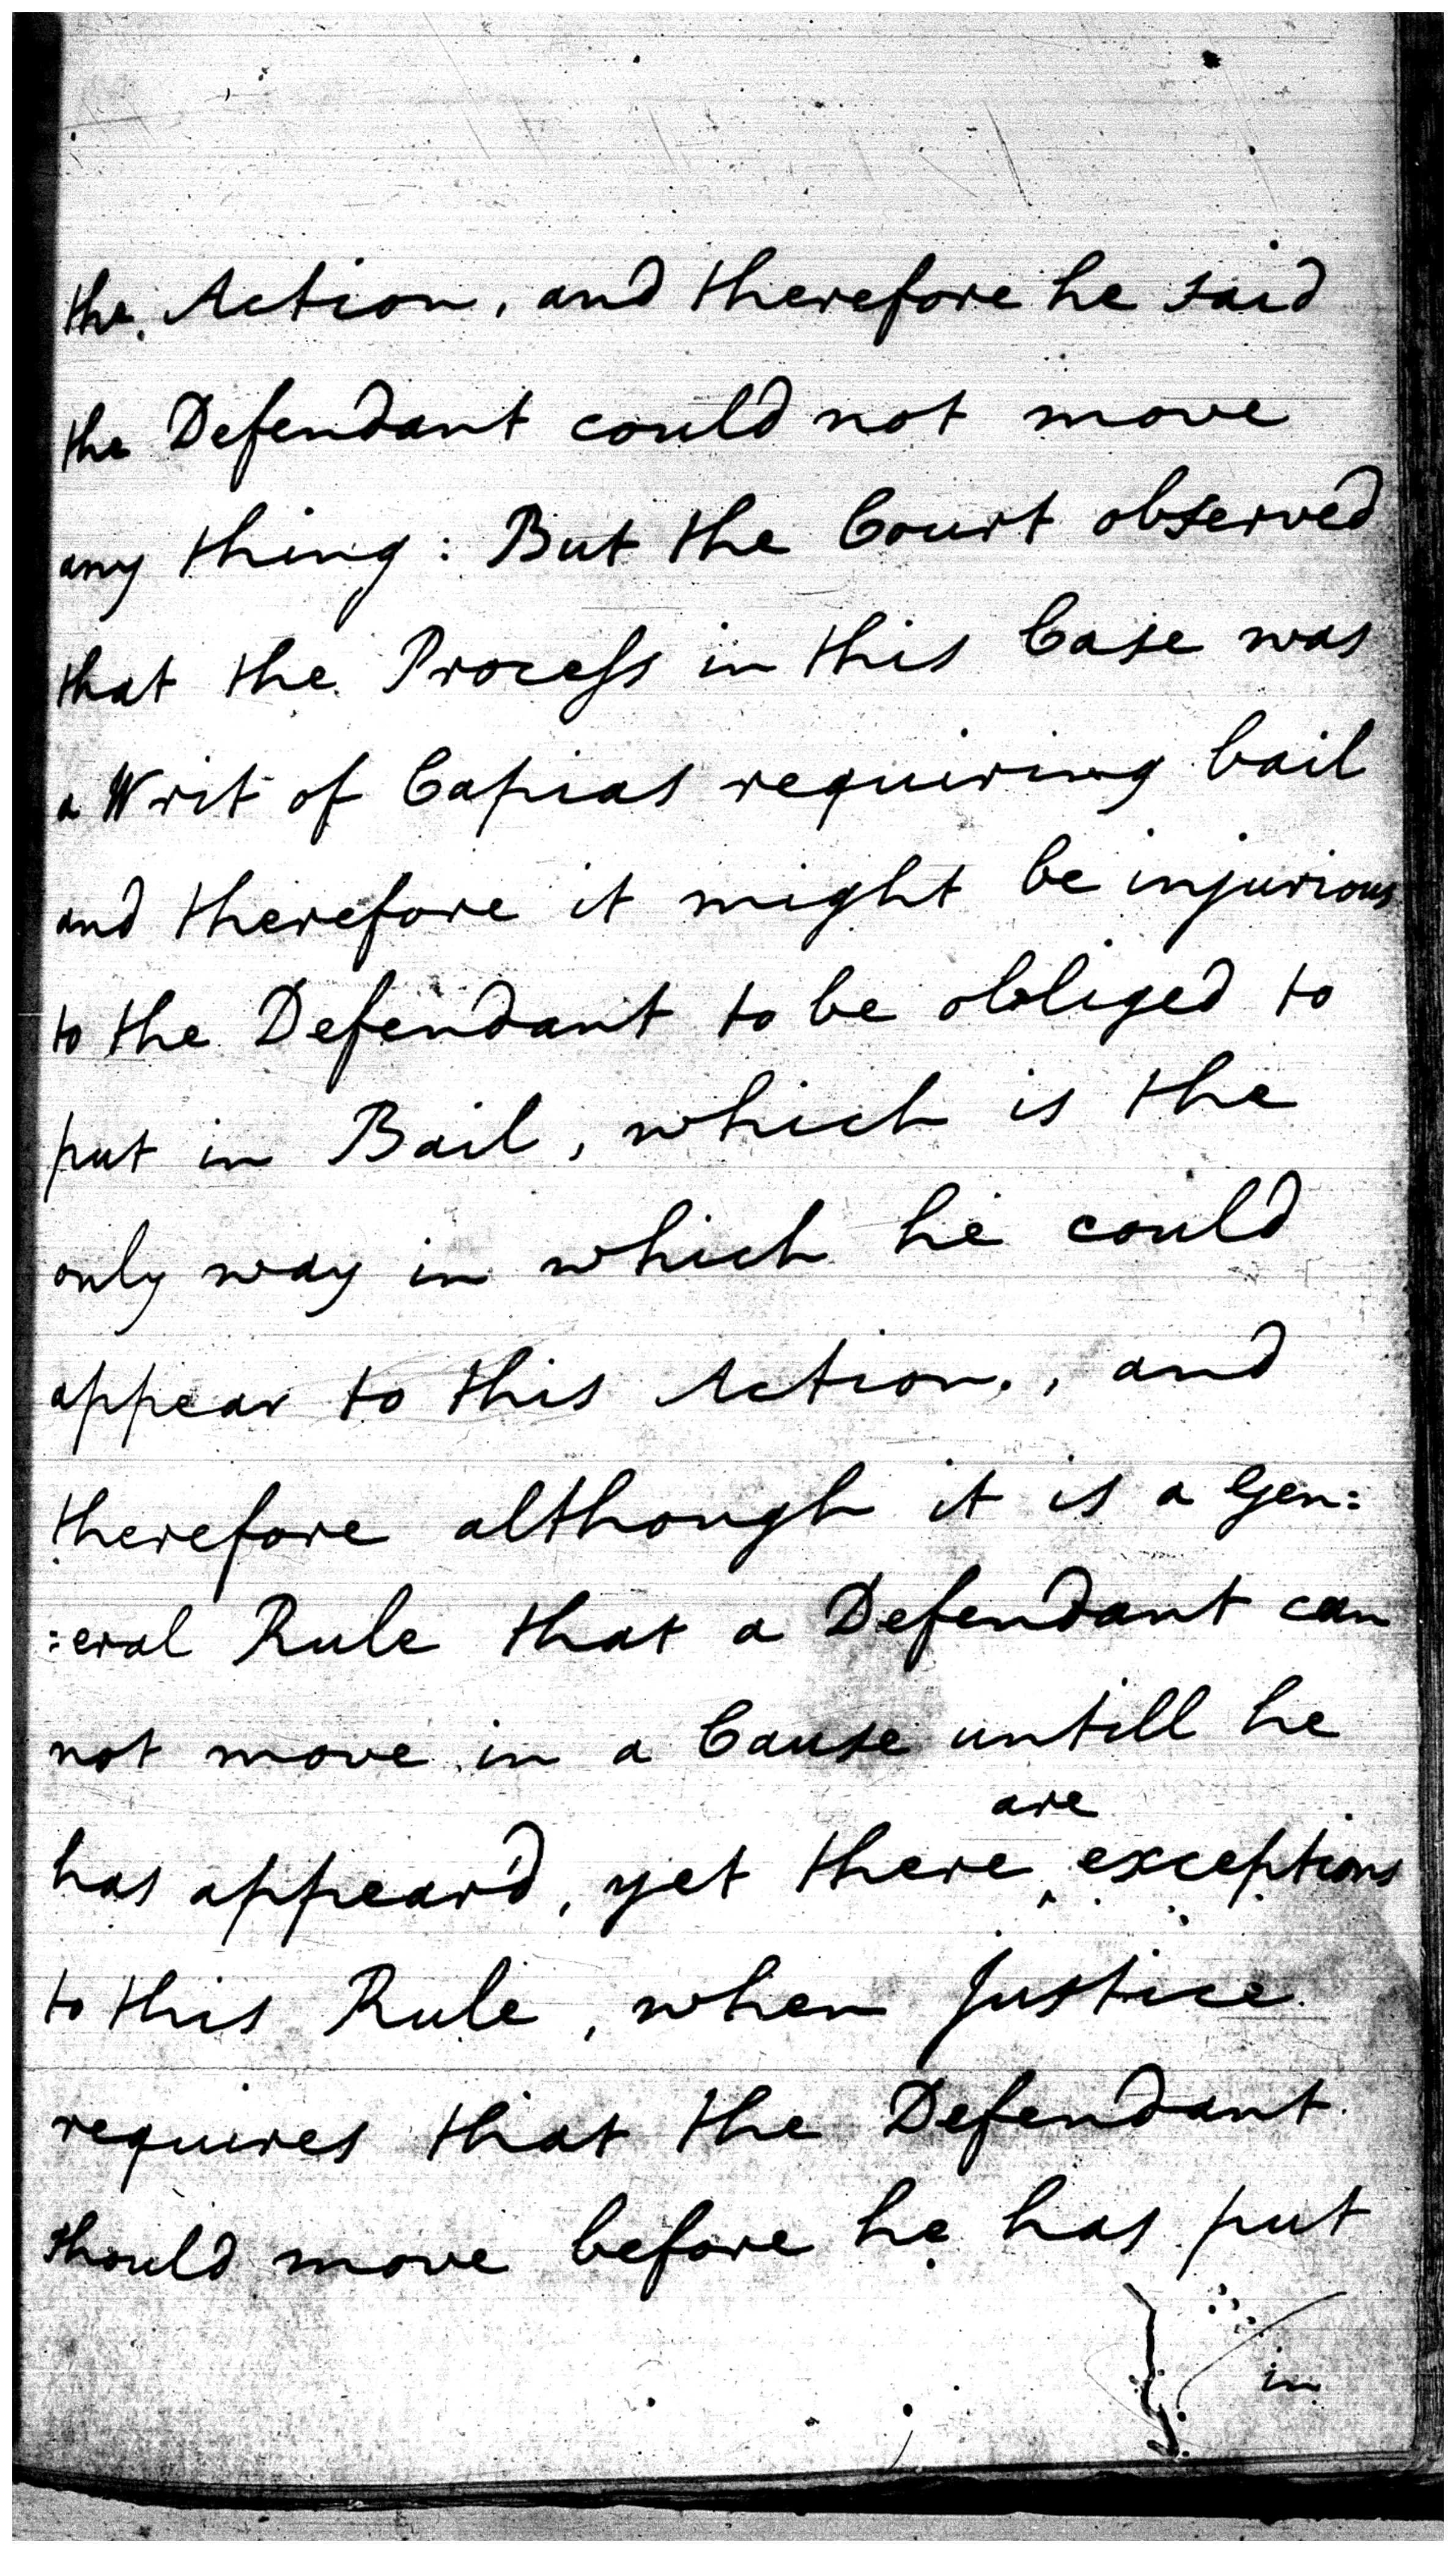 the Action, and therefore he said
the Defendant could not move
any thing: But the Court observed
that the Process in this Case was
a Writ of Capias requiring bail
and therefore it might be injurious
to the Defendant to be obliged to
put in Bail, which is the
only way in which he could
appear to this Action, and
therefore although it is a Gen:
:eral Rule that a Defendant can
not move in a Cause untill he
are
has appear'd, yet there ‸ exceptions
to this Rule, when Justice
requires that the Defendant
should move before he has put
in